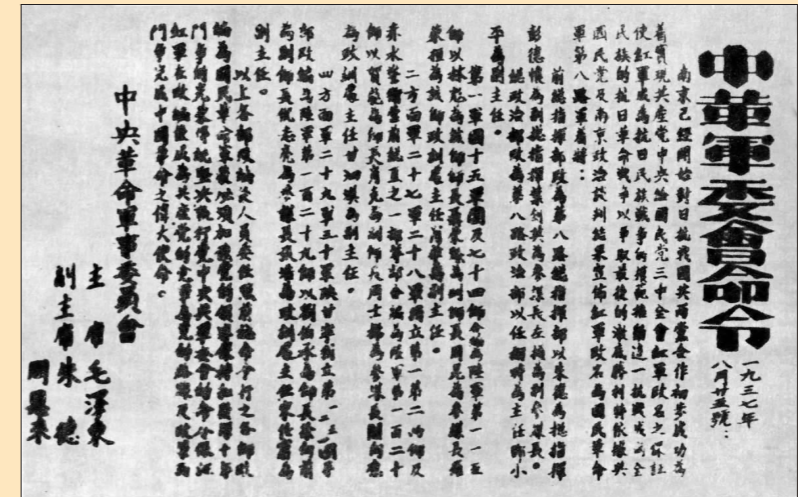 中革軍委會命令
一九三七年
八月廿五號：
南京已經開始對日抗戰國共兩黨合作初步成功為
着實現共產黨中央給國民黨三中全會紅軍改名之保証
使紅軍成為抗日民族戰爭的模範推動這一抗戰成為全
民族的抗日革命戰爭以爭取最後的澈底勝利特依據與
國民黨及南京政治談判結果宣佈紅軍改名為國民革命
軍第八路軍着將：
前總指揮部改為第八路總指揮部以朱德為總指揮
彭德懷為副總指揮葉劍英為參謀長左權為副參謀長。
總政治部改為第八路政治部以任弼時為主任鄧小
平為副主任。
第一軍團十五軍團及七十四師合編為陸軍第一一五
師以林彪為該師師長聶榮臻為副師長周昆為參謀長羅
榮桓為該師政訓處主任蕭華為副主任。
二方面軍二十七軍二十八軍獨立第一第二兩師及
赤水警衛營前總直之一部等部合編為陸軍第一百二十
師以賀龍為師長蕭克為副師長周士第為參謀長關向應
為政訓處主任甘泗淇為副主任。
四方面軍二十九軍三十軍陝甘寧獨立第一二三四團等
部改編為陸軍第一百二十九師以劉伯承為師長徐向前
為副師長倪志亮為參謀長張浩為政訓處主任宋任窮為
副主任。
以上各部改編後人員委任照原編命令行之各部改
編為國民革命軍後必須加強黨的領導保持和發揚十年
鬥爭的光榮傳統堅決執行黨中央與軍委會的命令保証
紅軍在改編後成為共產黨的黨軍為黨的路線及政策而
鬥爭完成中國革命之偉大使命。
中央革命軍事委員會
主席毛澤東
副主席朱德
周恩來